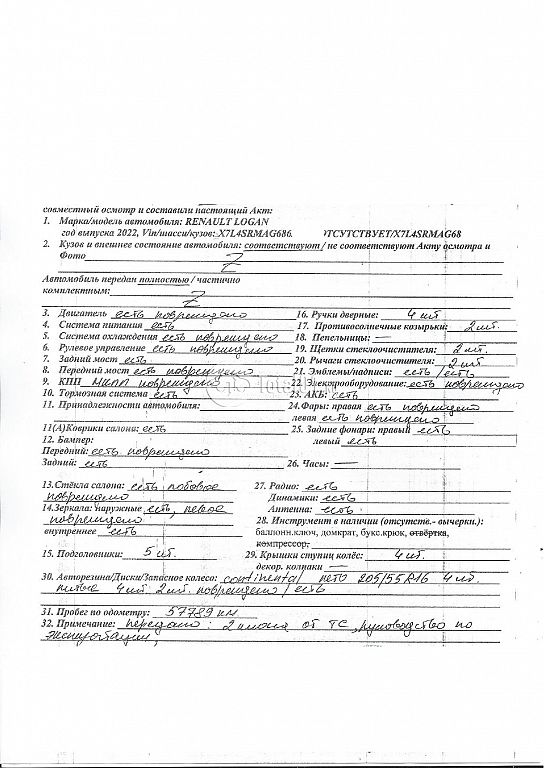 совместный осмотр и составили настоящий Акт:
1. Марка/модель автомобиля: RENAULT LOGAN
год выпуска 2022, Vin/шасси/кузов: X7L4SRMAG686. )ТСУТСТВУЕТ/X7L4SRMAG68
2. Кузов и внешнее состояние автомобиля: соответствуют / не соответствуют Акту осмотра и
Фото Z
Автомобиль передан полностью / частично
комплектным: Z
3. Двигатель есть повреждено
4. Система питания есть
5. Система охлаждения есть повреждено
6. Рулевое управление есть повреждено
7. Задний мост есть
8. Передний мост есть повреждено
9. КПП МКПП повреждено
10. Тормозная система есть
11. Принадлежности автомобиля:
11(А)Коврики салона: есть
12. Бампер:
Передний: есть повреждено
Задний: есть
16. Ручки дверные: 4 шт
17. Противосолнечные козырьки: 2 шт.
18. Пепельницы: —
19. Щетки стеклоочистителя: 2 шт.
20. Рычаги стеклоочистителя: 2 шт
21. Эмблемы/надписи: есть/есть
22. Электрооборудование: есть повреждено
23. АКБ: есть
24.Фары: правая есть повреждено
левая есть повреждено
25. Задние фонари: правый есть
левый есть
26. Часы: —
13.Стёкла салона: есть лобовое
повреждено
14.Зеркала: наружные есть, левое
повреждено
внутреннее есть
15. Подголовники: 5 шт.
27. Радио: есть
Динамики: есть
Антенна: есть
28. Инструмент в наличии (отсутств.- вычерки.):
баллонн.ключ, домкрат, букс.крюк, отвёртка,
компрессор,
29. Крышки ступиц колёс: 4 шт.
декор. колпаки —
30. Авторезина/Диски/Запасное колесо: continental лето 205/55 R16 4 шт.
литые 4 шт. 2 шт. повреждено / есть
31. Пробег по одометру: 57789 км
32. Примечание: передано: 2 ключа от ТС, руководство по
эксплуатации,